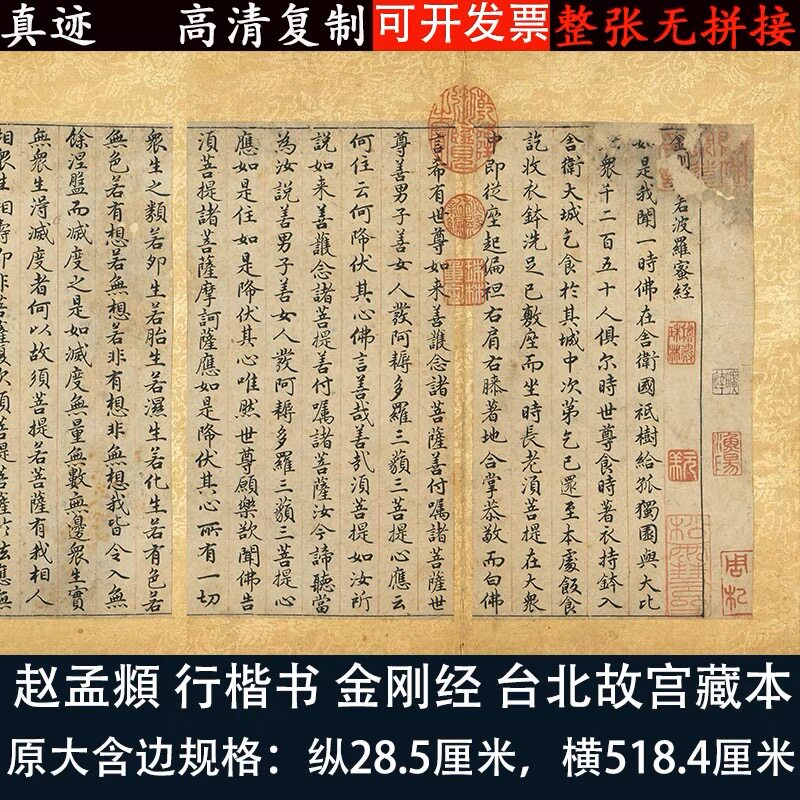 真迹 高清复制 可开发票 整张无拼接
金 若波羅蜜經
如是我聞一時佛在舍衛國祇樹給孤獨園與大比
衆千二百五十人俱尔時世尊食時著衣持鉢入
舍衛大城乞食於其城中次第乞已還至本處飯食
訖收衣鉢洗足已敷座而坐時長老湏菩提在大衆
中即從座起偏袒右肩右膝著地合掌恭敬而白佛
言希有世尊如来善護念諸菩薩善付囑諸菩薩世
尊善男子善女人發阿耨多羅三藐三菩提心應云
何住云何降伏其心佛言善哉善哉湏菩提如汝所
說如来善護念諸菩提善付囑諸菩薩汝今諦聽當
為汝說善男子善女人發阿耨多羅三藐三菩提心
應如是住如是降伏其心唯然世尊願樂欲聞佛告
湏菩提諸菩薩摩訶薩應如是降伏其心所有一切
衆生之類若卵生若胎生若濕生若化生若有色若
無色若有想若無想若非有想非無想我皆令入無
餘涅盤而滅度之是如滅度無量無數無邊衆生實
無衆生淂滅度者何以故須菩提若菩薩有我相人
赵孟頫 行楷书 金刚经 台北故宫藏本
原大含边规格：纵28.5厘米，横518.4厘米